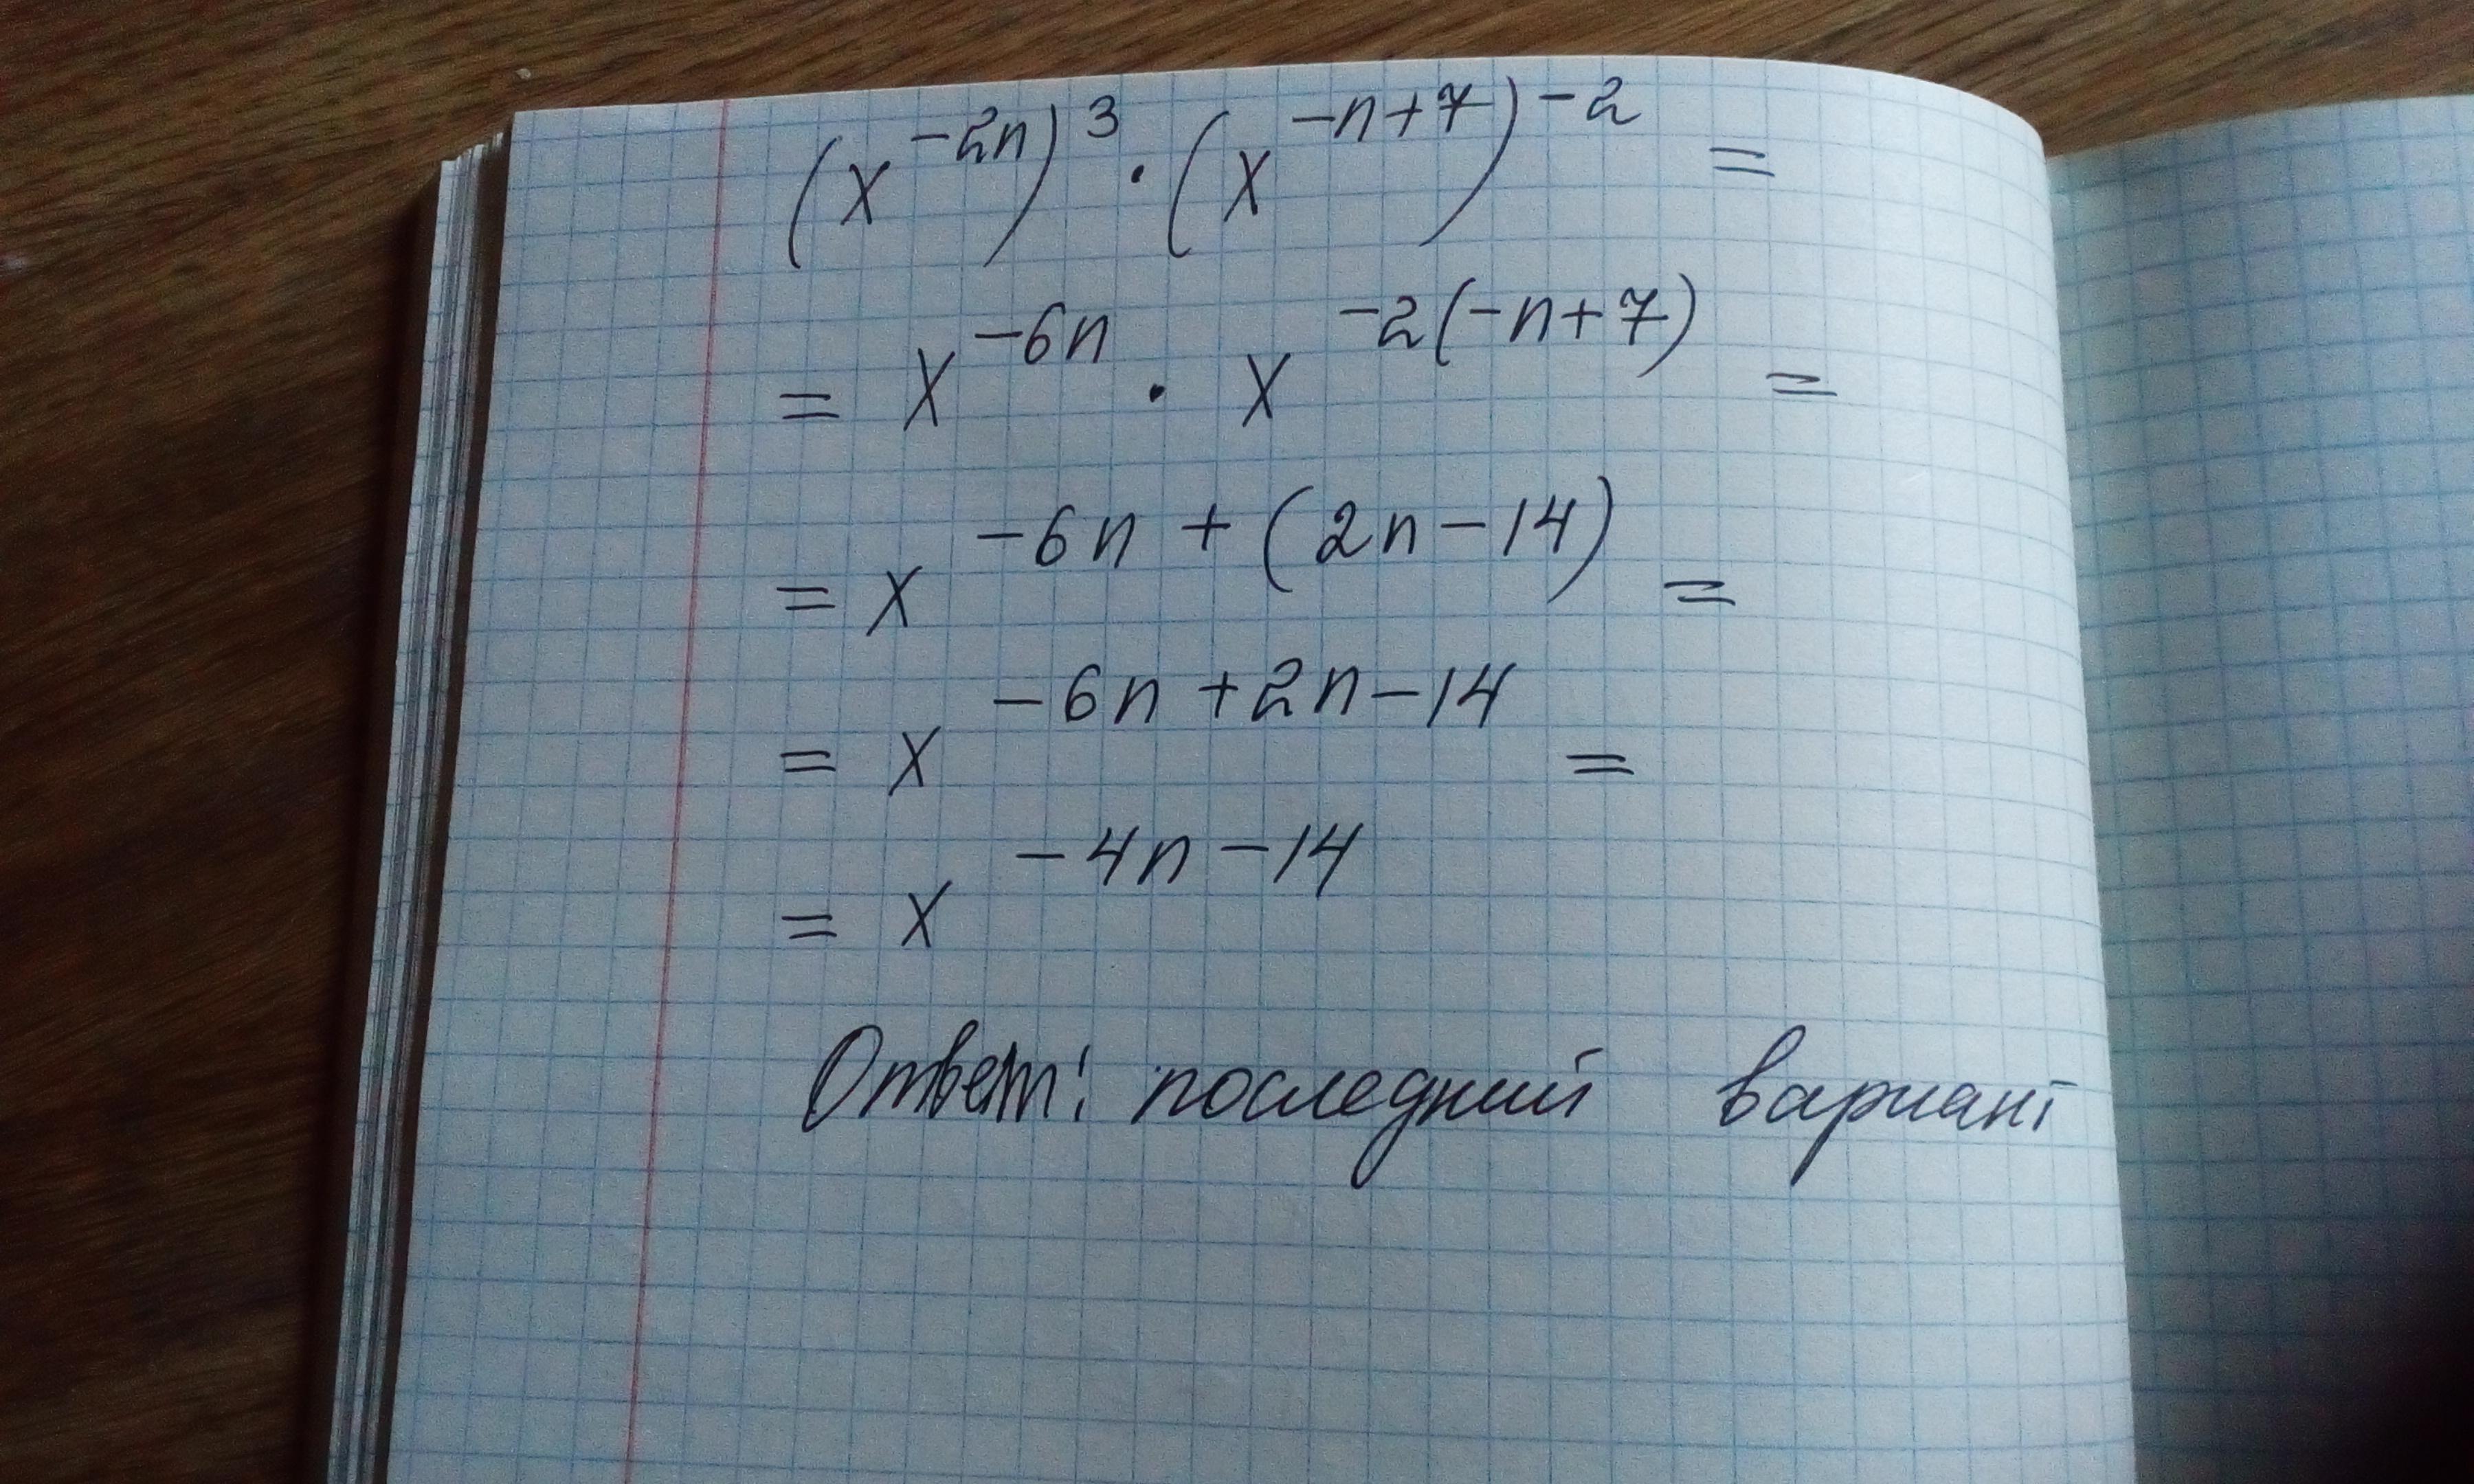 (x^{-2n})^3 · (x^{-n+7})^{-2} =
= x^{-6n} · x^{-2(-n+7)} =
= x^{-6n+(2n-14)} =
= x^{-6n+2n-14} =
= x^{-4n-14}
Ответ: последний вариант